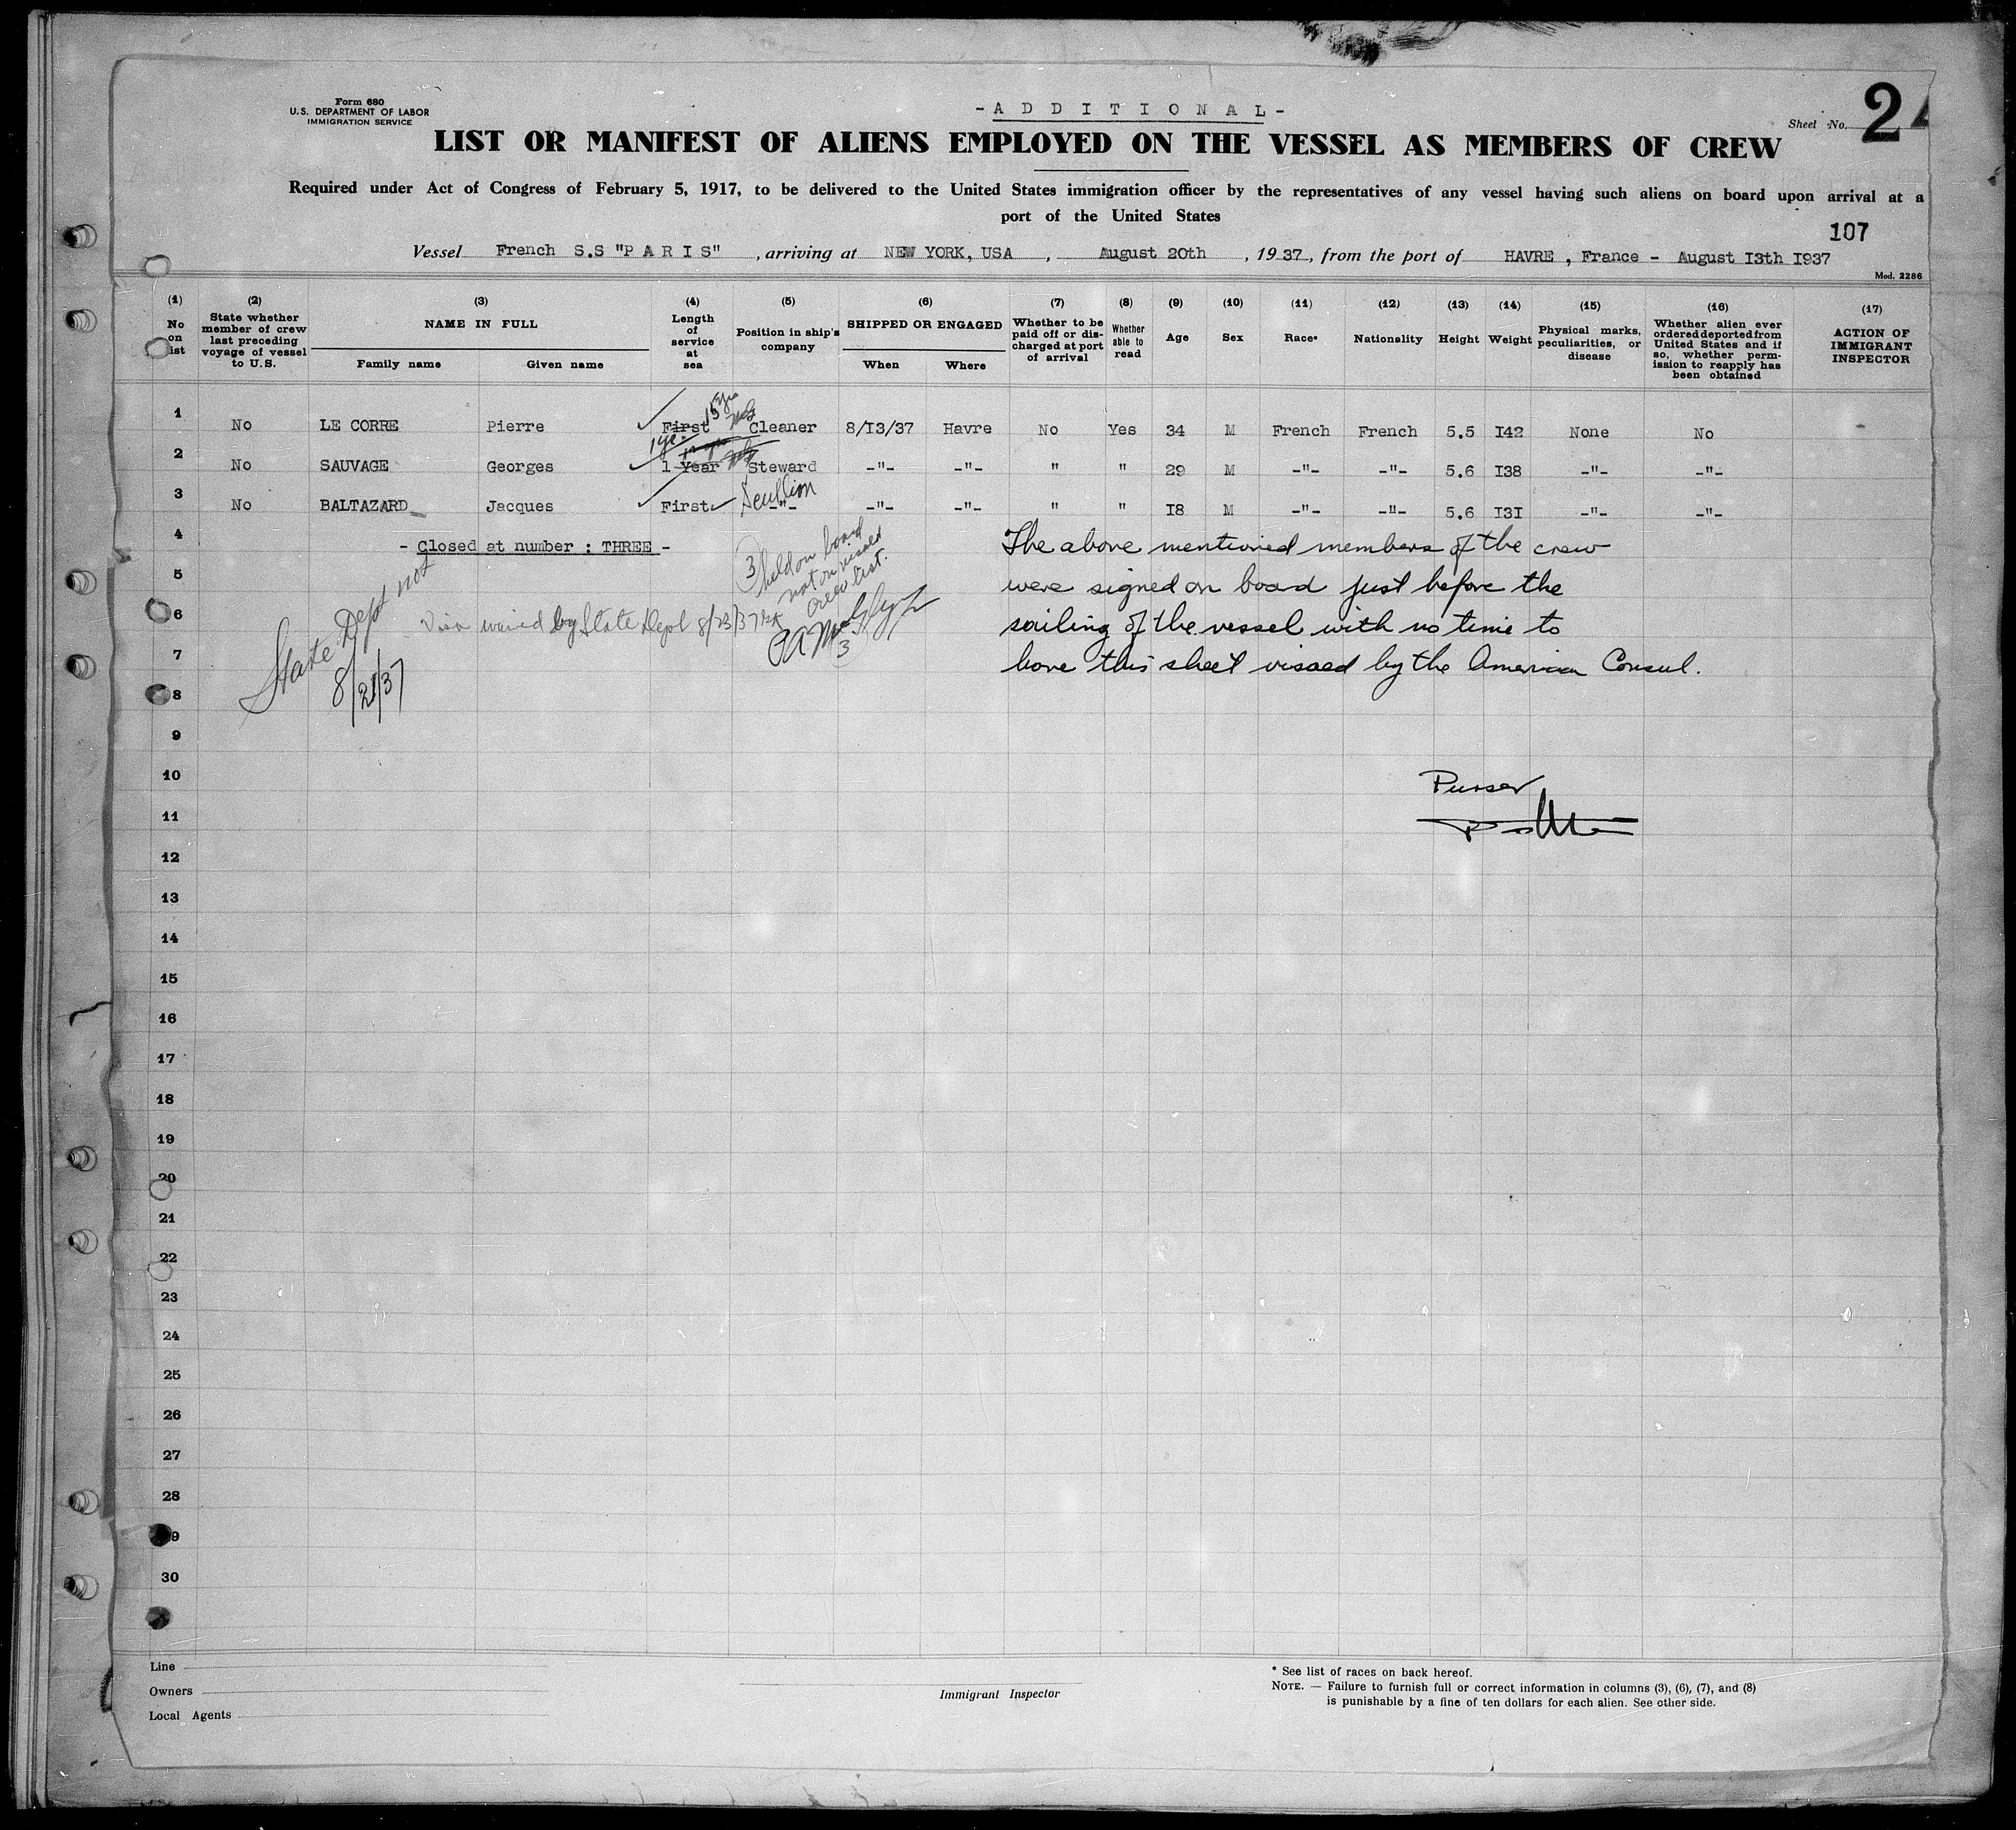 Form 680
U.S. DEPARTMENT OF LABOR
IMMIGRATION SERVICE
-A D D I T I O N A L-
Sheet No. 2
LIST OR MANIFEST OF ALIENS EMPLOYED ON THE VESSEL AS MEMBERS OF CREW
Required under Act of Congress of February 5, 1917, to be delivered to the United States immigration officer by the representatives of any vessel having such aliens on board upon arrival at a
port of the United States
107
Vessel French S.S "P A R I S" , arriving at NEW YORK, USA , August 20th , 1937, from the port of HAVRE , France - August I3th I937
Mod. 2286
(1) No on ist
(2) State whether member of crew last preceding voyage of vessel to U.S.
(3) NAME IN FULL Family name Given name
(4) Length of service at sea
(5) Position in ship's company
(6) SHIPPED OR ENGAGED When Where
(7) Whether to be paid off or dis-charged at port of arrival
(8) Whether able to read
(9) Age
(10) Sex
(11) Race*
(12) Nationality
(13) Height
(14) Weight
(15) Physical marks, peculiarities, or disease
(16) Whether alien ever ordered deported from United States and if so, whether perm-ission to reapply has been obtained
(17) ACTION OF IMMIGRANT INSPECTOR
15 yrs
1 No LE CORRE Pierre First Cleaner 8/I3/37 Havre No Yes 34 M French French 5.5 I42 None No -
1 yr.
2 No SAUVAGE Georges 1 Year Steward -"- -"- " " 29 M -"- -"- 5.6 I38 -"- -"-
Scullion
3 No BALTAZARD Jacques First -"- -"- -"- " " I8 M -"- -"- 5.6 I3I -"- -"-
4 - Closed at number : THREE -
The above mentioned members of the crew
were signed on board just before the
sailing of the vessel with no time to
have this sheet visaed by the American Consul.
3 held on board
not on visaed
crew list.
3
Visa waived by State Dept 8/23/37
State Dept not
8/21/37
5
6
7
8
9
10
Purser
11
12
13
14
15
16
17
18
19
20
21
22
23
24
25
26
27
28
9
30
Line
Owners
Local Agents
Immigrant Inspector
* See list of races on back hereof.
NOTE. — Failure to furnish full or correct information in columns (3), (6), (7), and (8)
is punishable by a fine of ten dollars for each alien. See other side.